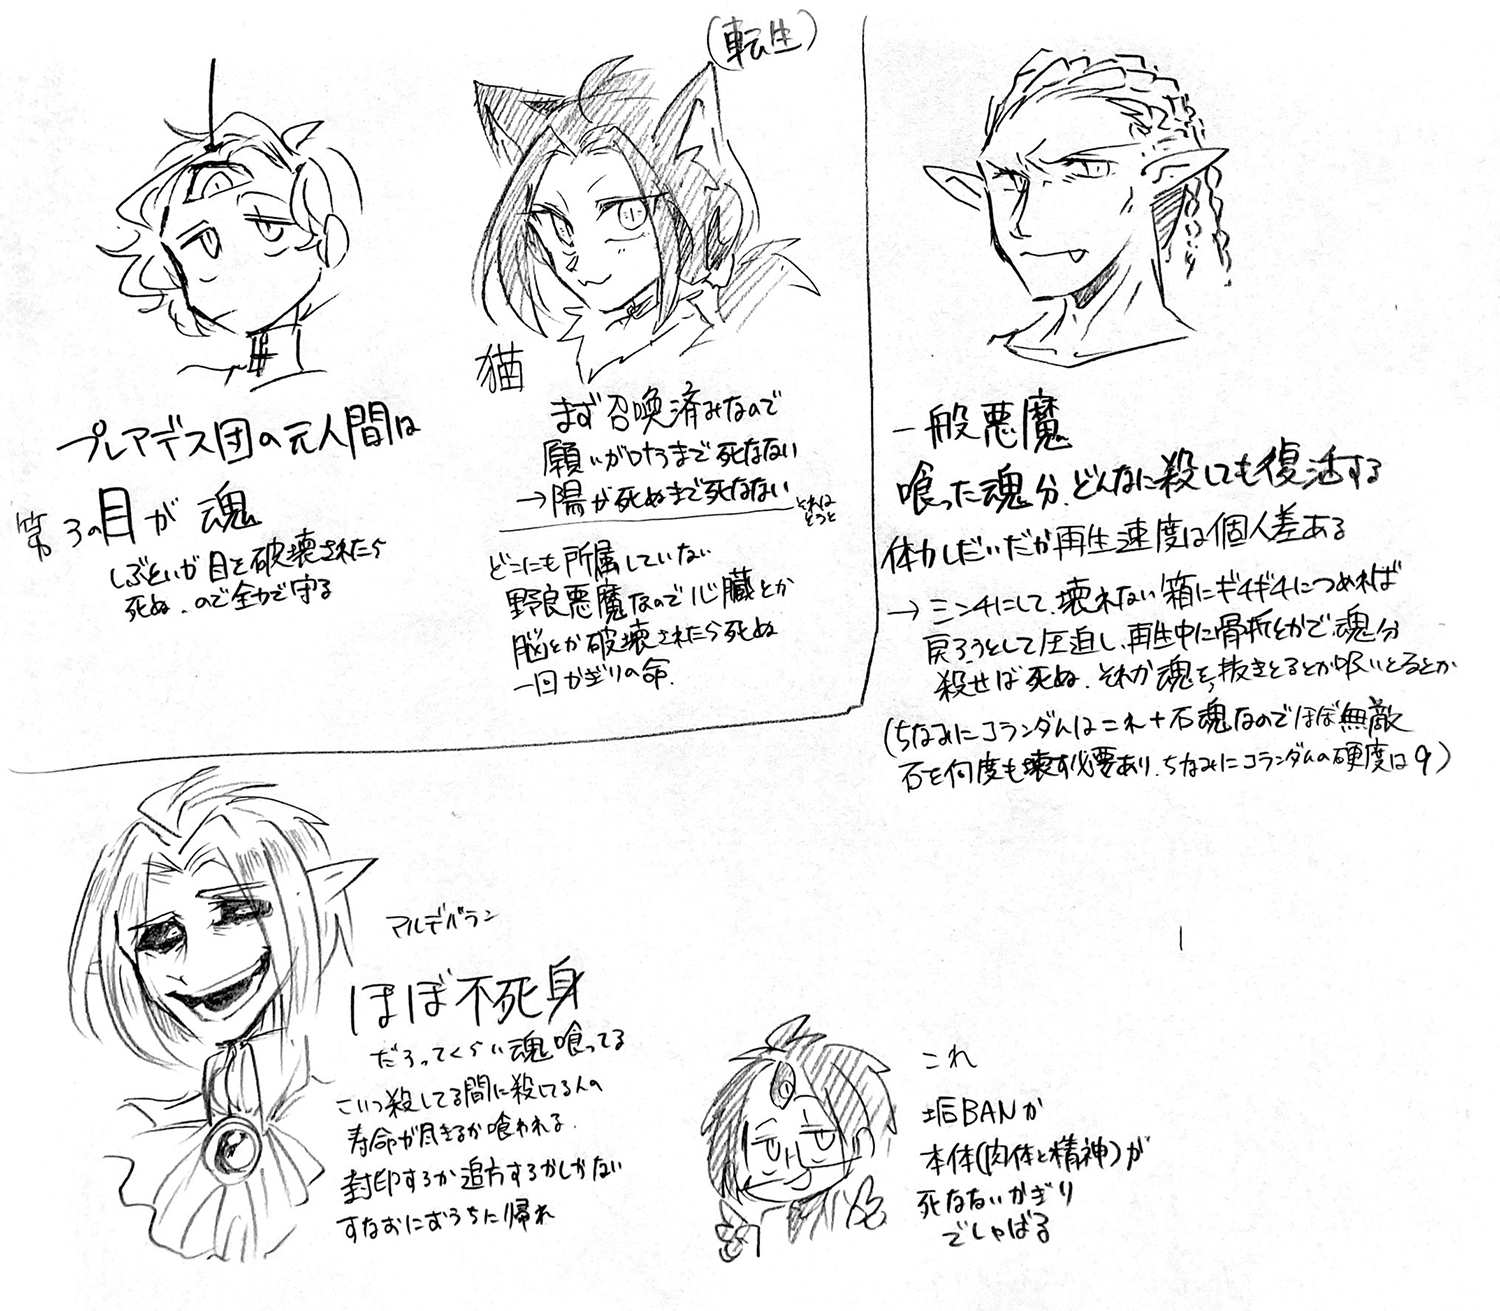 プレアデス団の元人間は
第3の目が魂
しぶといが目を破壊されたら
死ぬ、ので全力で守る
(転生)
猫
まず召喚済みなので
願いが叶うまで死なない
→陽が死ぬまで死なない
それは
どうと
どこにも所属していない
野良悪魔なので心臓とか
脳とか破壊されたら死ぬ
一回かぎりの命.
一般悪魔
喰った魂分、どんなに殺しても復活する
体力しだいだが再生速度は個人差ある
→ミンチにして、壊れない箱にギチギチにつめれば
戻ろうとして圧迫し、再生中に骨折とかで魂分
殺せば死ぬ、それか魂を抜きとるとか吸いとるとか
(ちなみにコランダムはこれ+石魂なのでほぼ無敵
石を何度も壊す必要あり、ちなみにコランダムの硬度は9)
アルデバラン
ほぼ不死身
だろってくらい魂喰ってる
こいつ殺してる間に殺してる人の
寿命が尽きるか喰われる.
封印するか追方するかしかない
すなおにおうちに帰れ
これ
垢BANか
本体(肉体と精神)が
死なないかぎり
でしゃばる